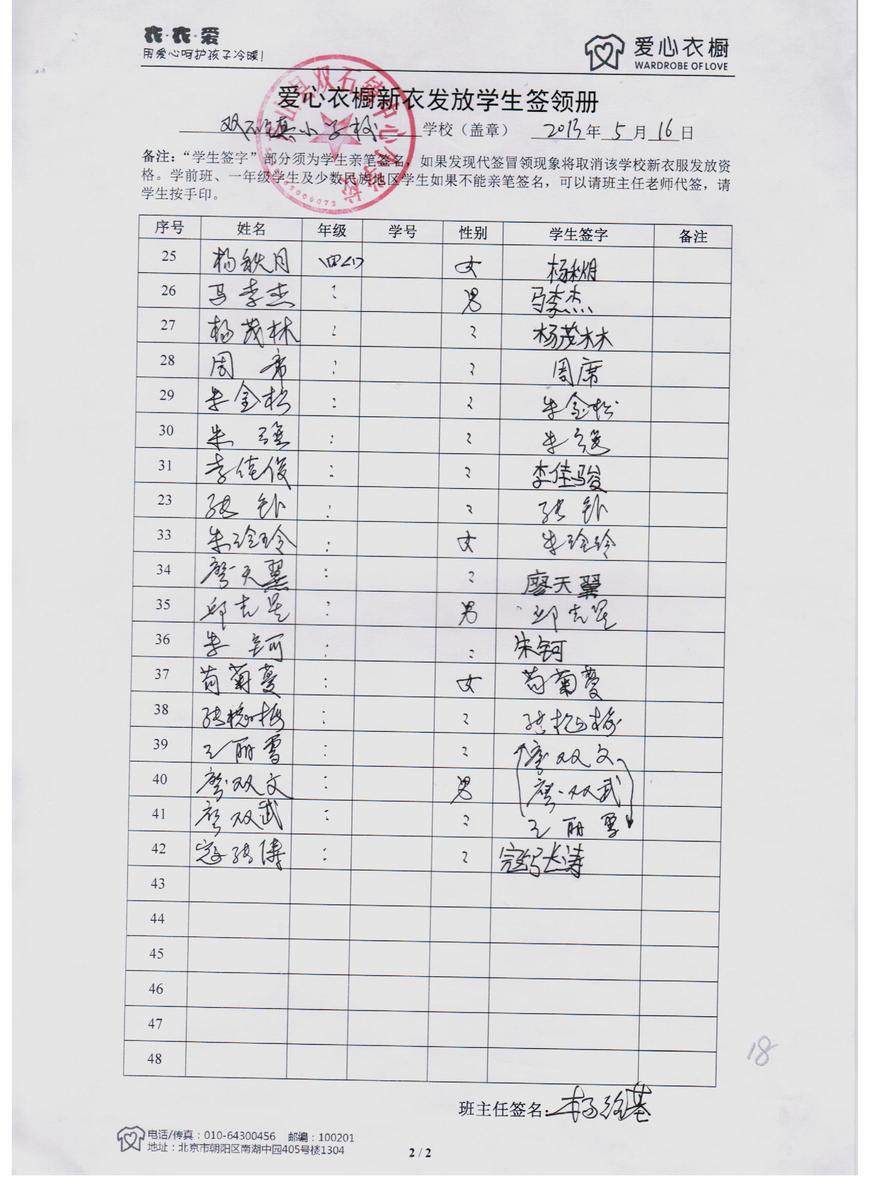 衣·衣·爱
用爱心呵护孩子冷暖!
爱心衣橱
WARDROBE OF LOVE
爱心衣橱新衣发放学生签领册
双石镇小学校 学校（盖章） 2013年 5月 16日
备注：“学生签字”部分须为学生亲笔签名，如果发现代签冒领现象将取消该学校新衣服发放资
格。学前班、一年级学生及少数民族地区学生如果不能亲笔签名，可以请班主任老师代签，请
学生按手印。
序号 姓名 年级 学号 性别 学生签字 备注
25 杨秋月 四(2) 女 杨秋月
26 马李杰 : 男 马李杰
27 杨茂林 : 杨茂林
28 周席 : 周席
29 朱金松 : 朱金松
30 朱强 : 朱强
31 李佳俊 : 李佳骏
23 张 : 张
33 朱玲玲 : 女 朱玲玲
34 廖天翼 : 廖天翼
35 邱志星 : 男 邱志星
36 朱钶 : 朱钶
37 苟菊蔓 : 女 苟菊蔓
38 张艳梅 : 张艳梅
39 王丽雪 : 廖双文
40 廖双文 : 男 廖双武
41 廖双武 : 王丽雪
42 寇张涛 : 寇张涛
43
44
45
46
47
48
18
班主任签名: 杨
电话/传真：010-64300456 邮编：100201
地址：北京市朝阳区南湖中园405号楼1304
2 / 2